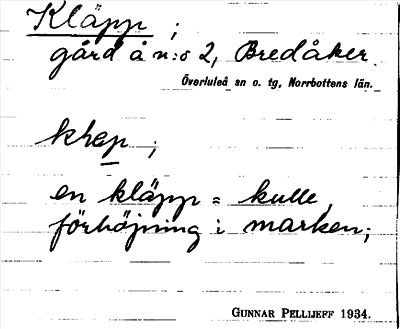 Kläpp ;
gård å n:o 2, Bredåker.
Överluleå sn o. tg, Norrbottens län.
en kläpp = kulle,
förhöjning i marken;
GUNNAR PELLIJEFF 1934.